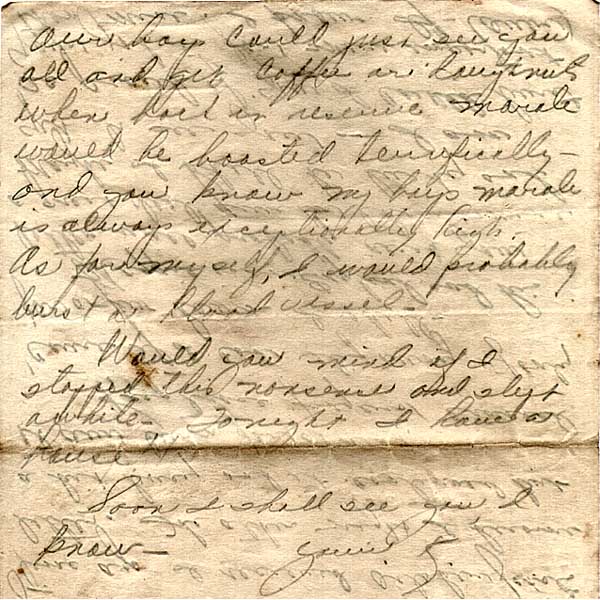 Our boys could just see you
all and get coffee or doughnuts
when back in reserve morale
would be boosted terrifically –
and you know my boys morale
is always exceptionally high.
As for myself, I would probably
burst a blood vessel –
Would you mind if I
stopped this nonsense and slept
awhile – Tonight I have a
house
Soon I shall see you I
know –